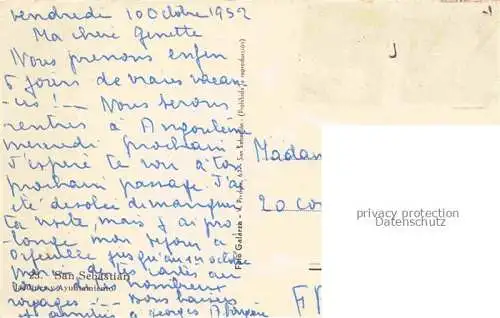 vendredi 10 Octobre 1952
Ma chère Ginette
Nous prenons enfin
5 jours de vraies vacan-
-ces ! -- Nous serons
rentrés à Angoulême
mercredi prochain
J'espère te voir à ton
prochain passage. J'ai
été désolée de manquer
ta visite, mais j'ai pro-
-longé mon séjour à
jusqu'au 1er octobre
Merci des cartes au
de nombreux
voyages -- Nous baisers
et amitiés à Georges
23. San Sebastián
Jardines y Ayuntamiento
Foto Galarza - San Sebastián - (Prohibida la reproducción)
Madam
20 co
F
privacy protection
Datenschutz